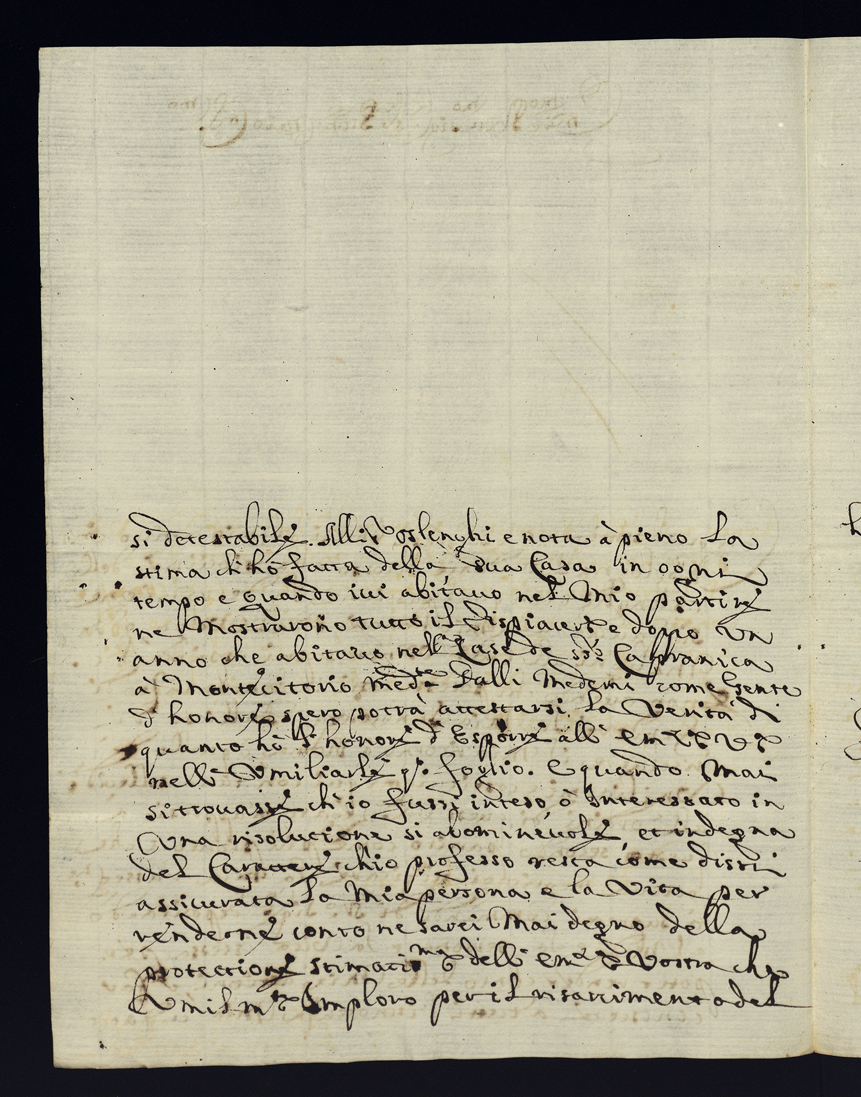 si detestabile. Alli Voslenghi e nota à pieno La
stima ch hò fatta della Sua Casa in ogni
tempo e quando ivi abitavo nel Mio partire
ne Mostrarono tutto il dispiacere e doppo un
anno che abitavo nell Case de SS.ri Capranica
à Montecitorio med.te dalli Medemi come Gente
d'honore spero potrà attestarsi La Verità di
quanto hò l'honore d'Esporre all' Em.za V.ra
nell' Umiliarle q.o foglio. E quando Mai
si trovasse ch'io fussi inteso, ò Interessato in
Una risolucione si abominevole et indegna
del Carattere ch'io professo resta come dissi
assicurata La Mia persona e la Vita per
renderne conto ne sarei Mai degno della
protectione stimatis.ma dell' Em.za Vostra che
Umilm.te Imploro per il risarcimento del